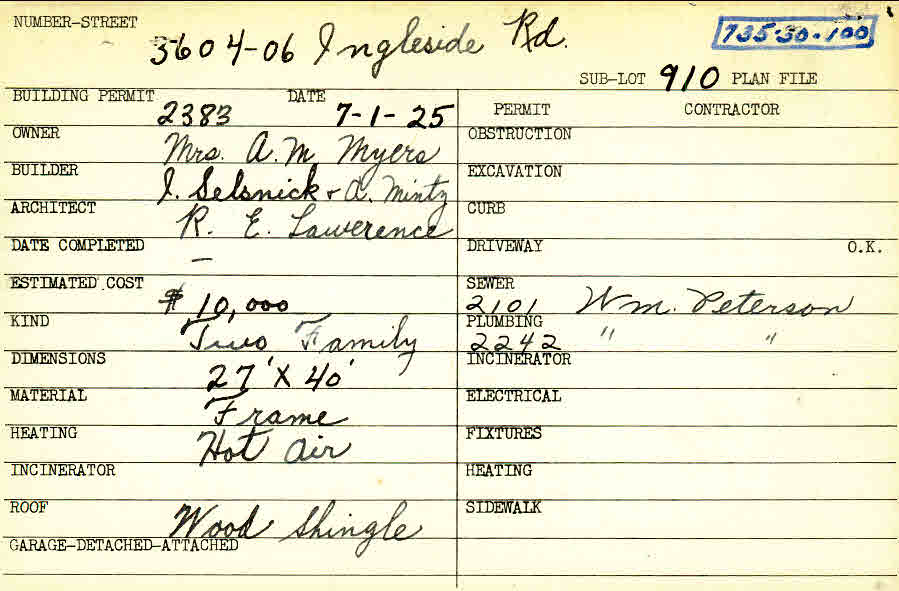 NUMBER-STREET
3604-06 Ingleside Rd.
735-30-100
SUB-LOT 910 PLAN FILE
BUILDING PERMIT 2383 DATE 7-1-25
PERMIT CONTRACTOR
OWNER Mrs. A.M Myers
OBSTRUCTION
BUILDER I. Selsnick + A. Mintz
EXCAVATION
ARCHITECT R. E. Lawerence
CURB
DATE COMPLETED —
DRIVEWAY O.K.
ESTIMATED COST $10,000
SEWER 2101 Wm. Peterson
KIND Two Family
PLUMBING 2242 " "
DIMENSIONS 27' X 40'
INCINERATOR
MATERIAL Frame
ELECTRICAL
HEATING Hot Air
FIXTURES
INCINERATOR
HEATING
ROOF Wood Shingle
SIDEWALK
GARAGE-DETACHED-ATTACHED